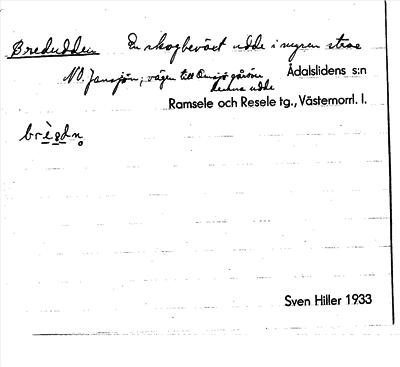 Bredudden En skogbevöxt udde i myren strax
NO. Jansjön; vägen till Önsjö går över Ådalslidens s:n
denna udde
Ramsele och Resele tg., Västernorrl. l.
brègdn̥
Sven Hiller 1933